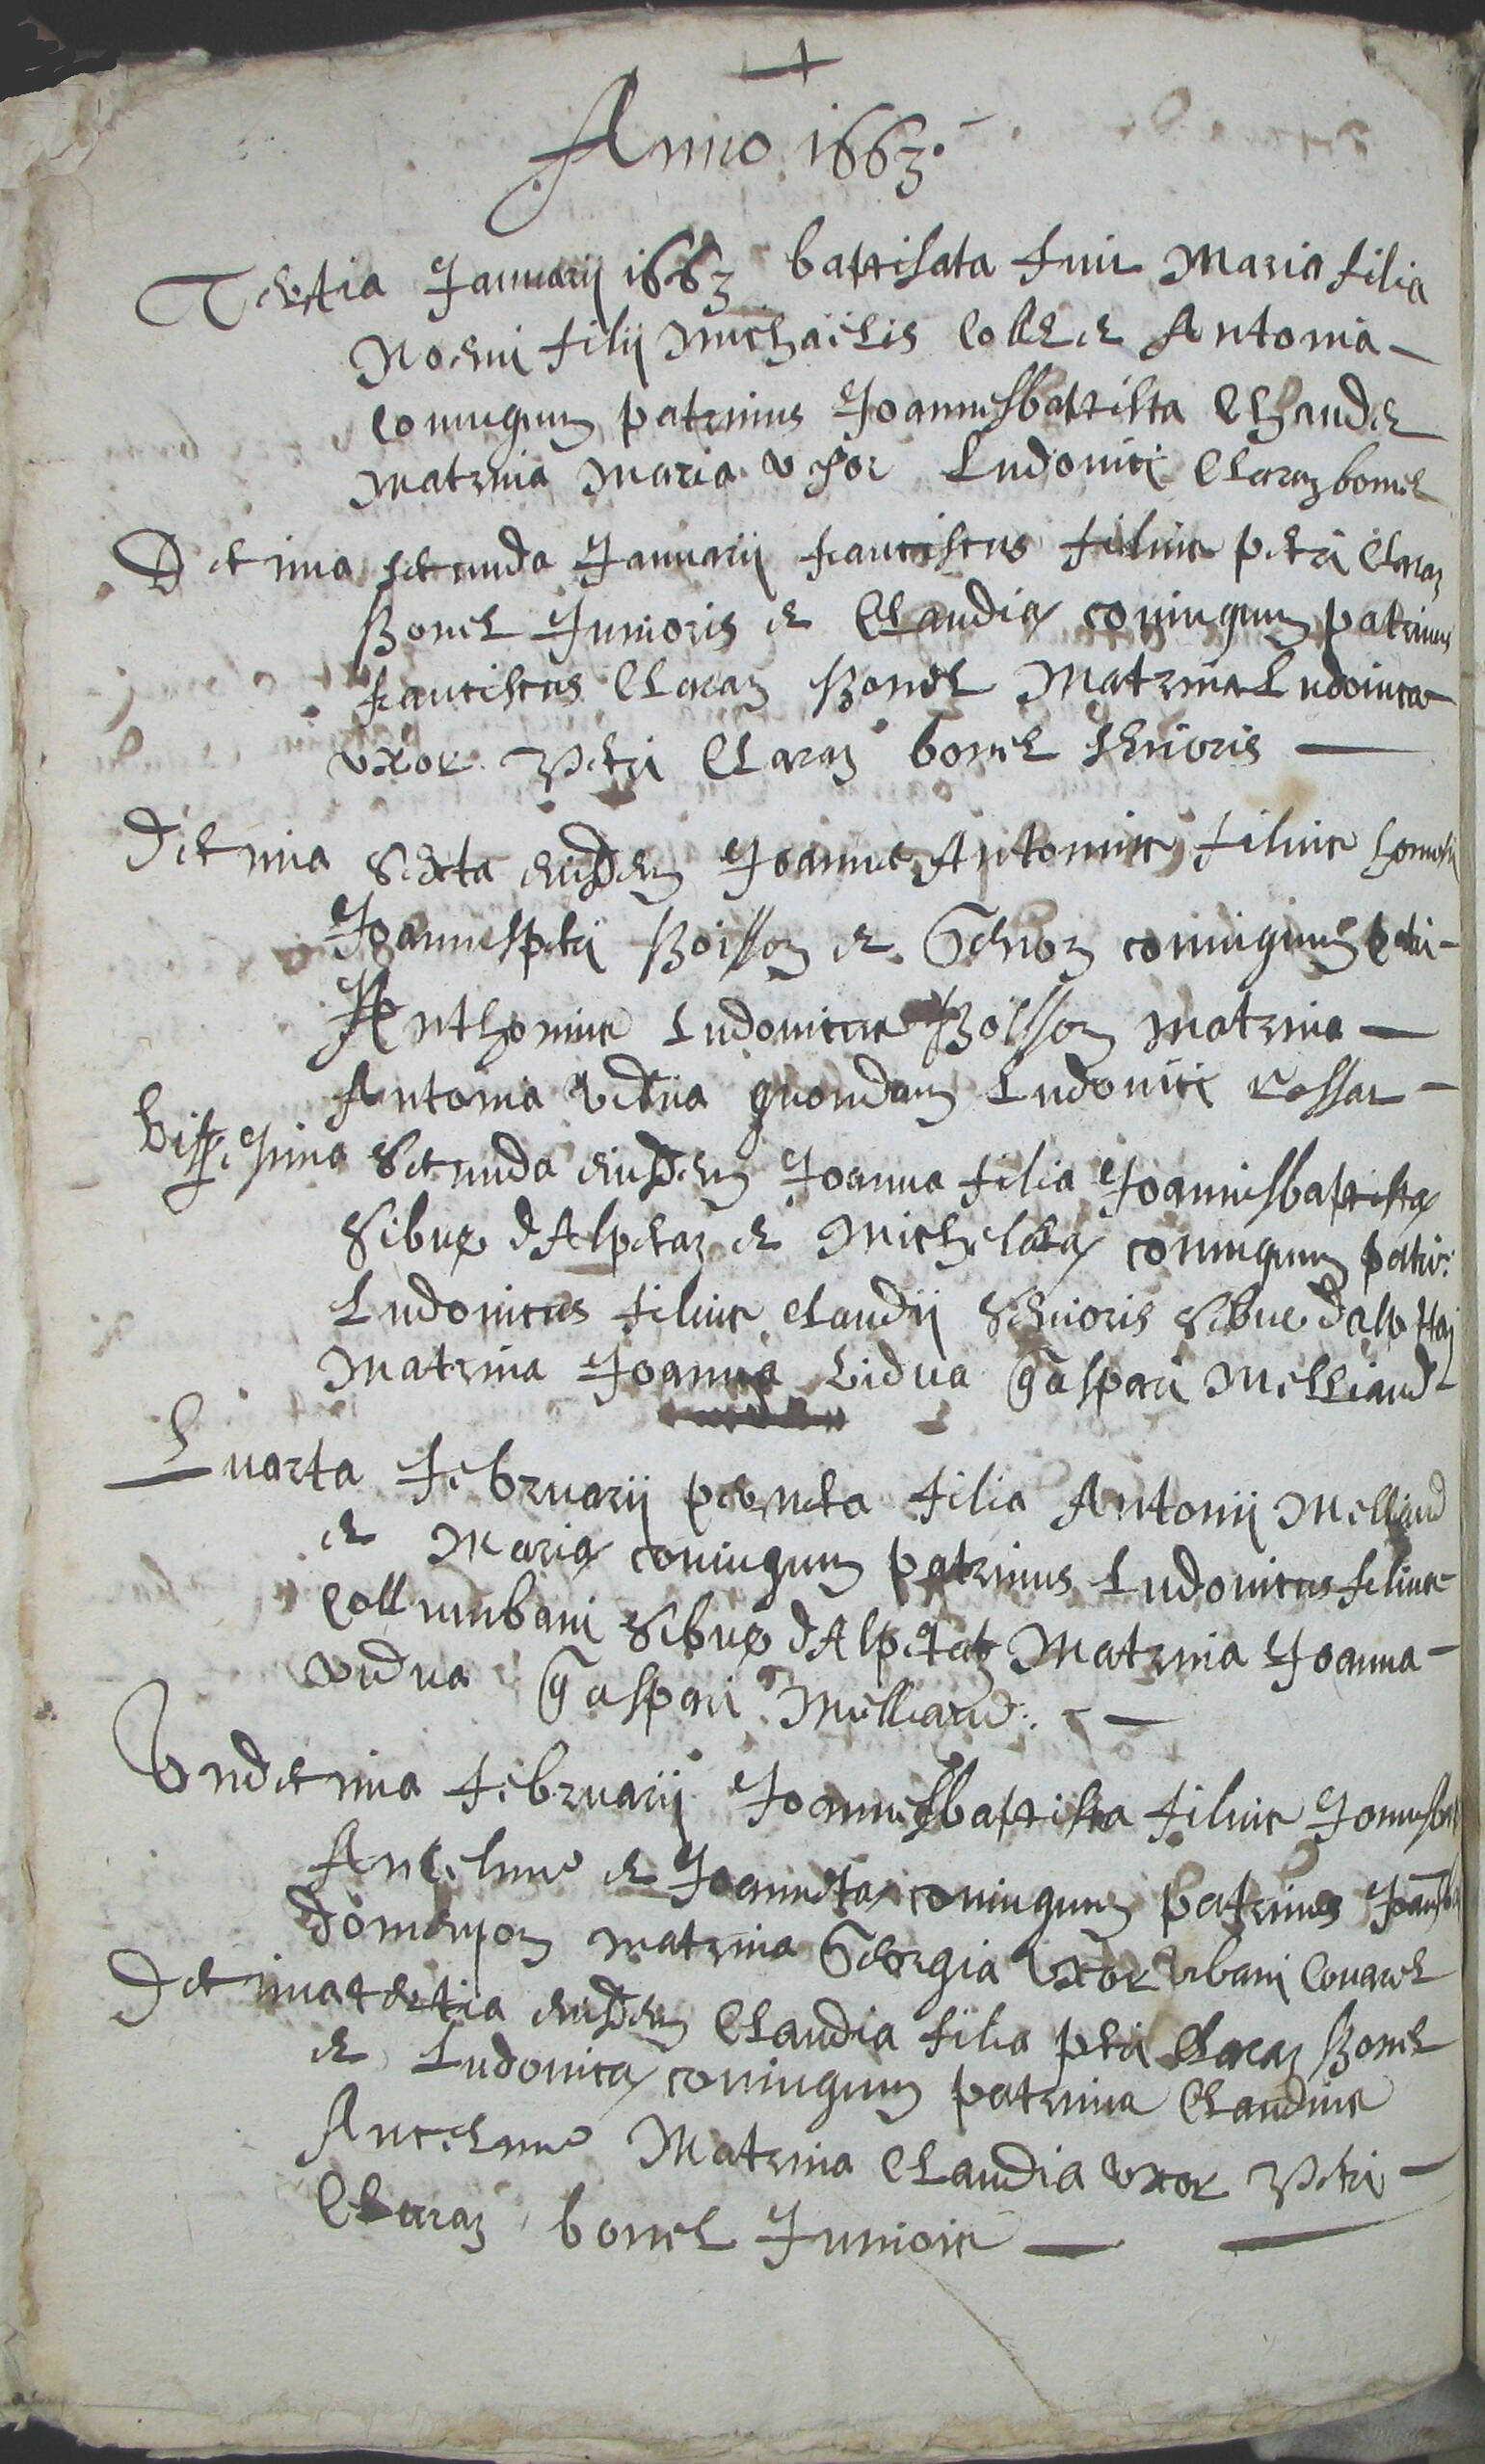 Anno 1663.
Tertia Januarij 1663 battisata fuit Maria filia
Noemi filij Michaëlis Collet et Antonia
coniugum patrinus Joannesbattista Claudet
matrina Maria uxor Ludovici Claraz bonet
Decima secunda Januarij franciscus filius petri Claraz
Bonet Junioris et Claudiæ coniugum patrinus
franciscus Claraz Bonet Matrina Ludovica
uxor Petri Claraz bonet senioris
Decima sexta eiusdem Joannes Antonius filius
Joannispetri Boisson et coniugum patri-
Anthonius Ludovicus Boisson matrina
Antonia vedua quondam Ludovici
Vigesima secunda eiusdem Joanna filia Joannisbattistæ
Sibue dAlpetaz et Micheletæ coniugum patri:
Ludovicus filius claudij Senioris Sibue dalpettaz
Matrina Joanna vidua Gaspari Melliand
Quarta Februarij perneta filia Antonij Melliand
et Mariæ coniugum patrinus Ludovicus filius
Collumbani Sibue dAlpetaz Matrina Joanna
vidua Gaspari Melliand:
Undecima februarij Joannesbattista filius
Ancelme et Joannetæ coniugum patrinus
matrina Georgia uxor Urbani
Decimatertia eiusdem Claudia filia petri Claraz Bonet
et Ludovicæ coniugum patrinus Claudius
Ancelme Matrina Claudia uxor Petri
Claraz bonet Junioris